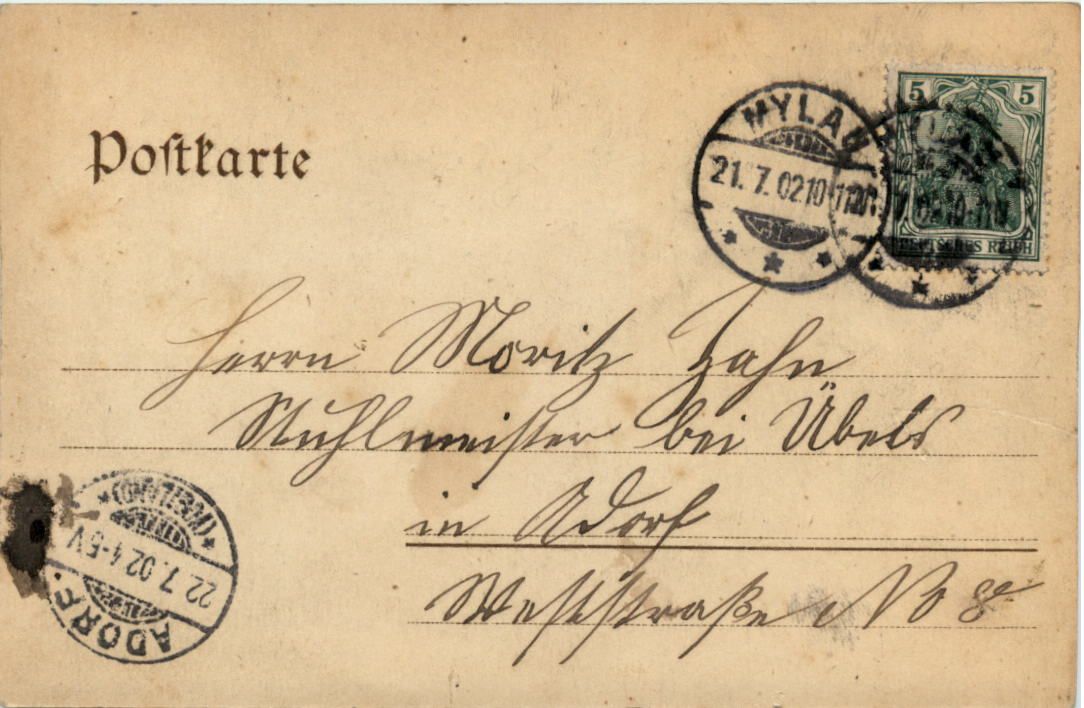 Postkarte
MYLAU
21. 7. 02 10-11
5 5
DEUTSCHES REICH
Herrn Moritz Zahn
Stuhlmeister bei Übels
in Adorf
Weststraße No 8
ADORF
(VOGTLAND)
22. 7. 02 4-5V